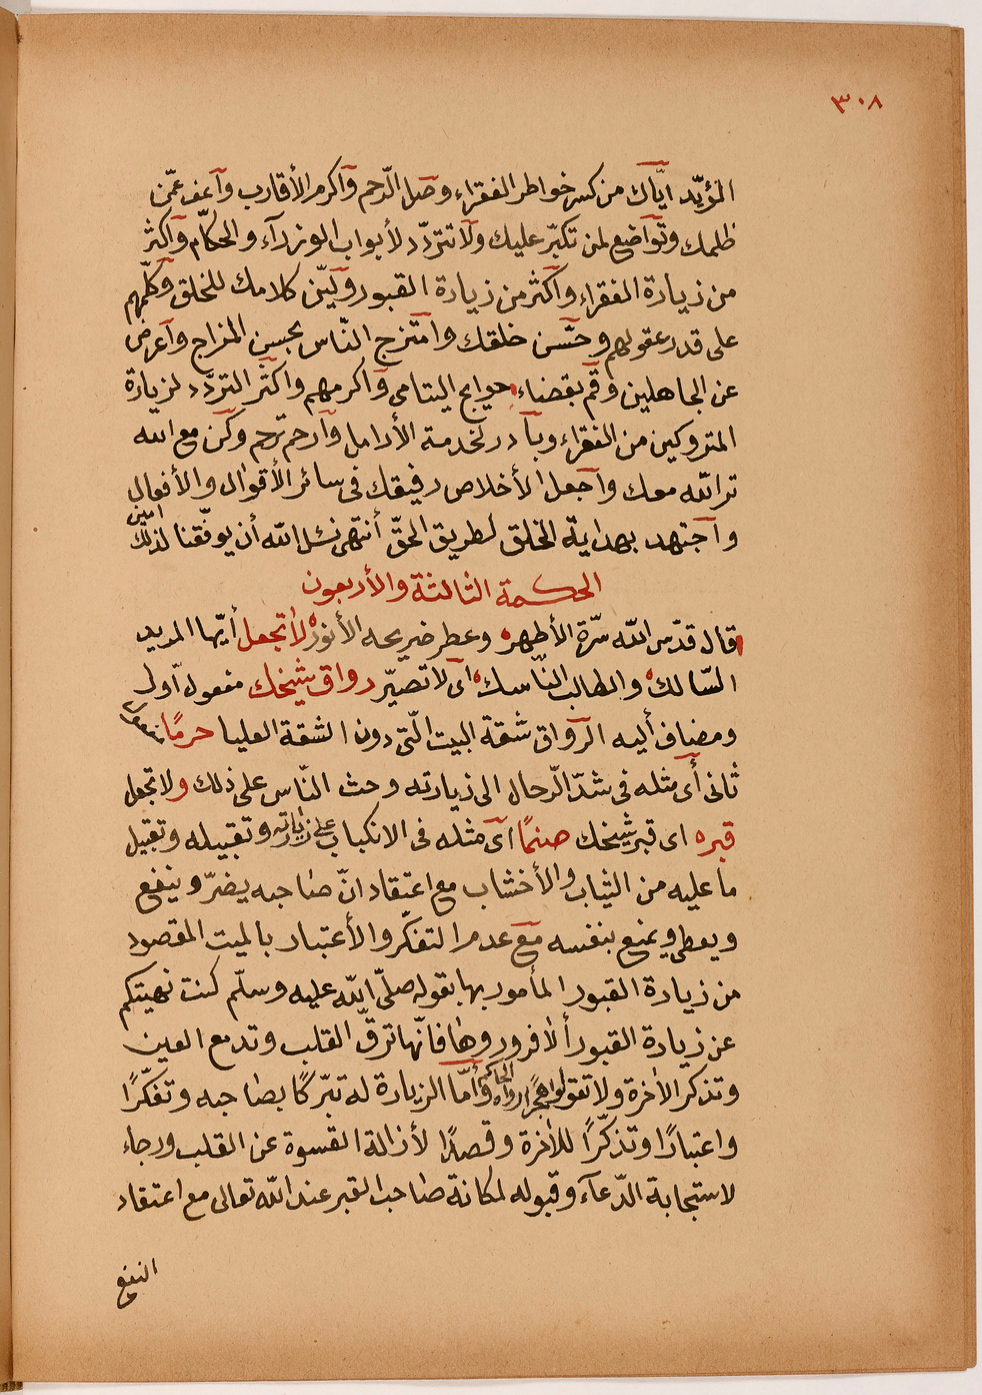 ٣٠٨
المؤبّد ايّاك من كسر خواطر الفقراء وصل الرّحم وأكرم الأقارب وآعف عمّن
ظلمك وتواضع لمن تكبّر عليك ولا تتردّد لأبواب الوزرآء والحكّام وأكثر
من زيارة الفقراء وأكثر من زيارة القبور وليّن كلامك للخلق وكلّمهم
على قدر عقولهم وحسّن خلقك وامتزج النّاس بحسن المزاج وآعرض
عن الجاهلين وقم بقضاء حوايج اليتامى وأكرمهم واكثر التردّد لزيارة
المتروكين من الفقراء وبآدر لخدمة الأرامل وآرحم ترحم وكن مع الله
تر الله معك وآجعل الأخلاص رفيقك فى سائر الأقوال والأفعال
وآجتهد بهداية الخلق لطريق الحقّ أنتهى نسئل الله أن يوفّقنا لذلك امين
الحكمة الثالثة والأربعون
قال قدّس الله سرّه الأطهر وعطر ضريحه الأنور لا تجعل أيّها المريد
السّالك والطالب النّاسك اى لا تصيّر رواق شيخك مفعول آوّل
ومضاف أليه الرّواق شقة البيت الّتى دون الشقة العليا حرمًا
ثانى أى مثله فى شدّ الّرحال الى زيارته وحث النّاس على ذلك ولا تجعل
قبره اى قبر شيخك صنمًا اى مثله فى الانكباب على زيارته وتقبيله وتقبيل
ما عليه من الثياب والأخشاب مع اعتقاد انّ صاحبه يضرّ وينفع
ويعطى ويمنع بنفسه مع عدم التفكّر والأعتبار بالميت المقصود
من زيارة القبور المأمور بها بقوله صلّى الله عليه وسلّم كنت نهيتكم
عن زيارة القبور ألا فزوروها فانّها ترقّ القلب وتدمع العين
وتذكر الآخرة ولا تقولوا هجرًا رواه الحاكم وأمّا الزيارة له تبرّكًا بصاحبه وتفكّرًا
واعتبارًا وتذكّرًا للآخرة وقصدًا لأزالة القسوة عن القلب ورجاء
لاستجابة الدّعآء وقبوله لمكانة صاحب القبر عند الله تعالى مع اعتقاد
النفع